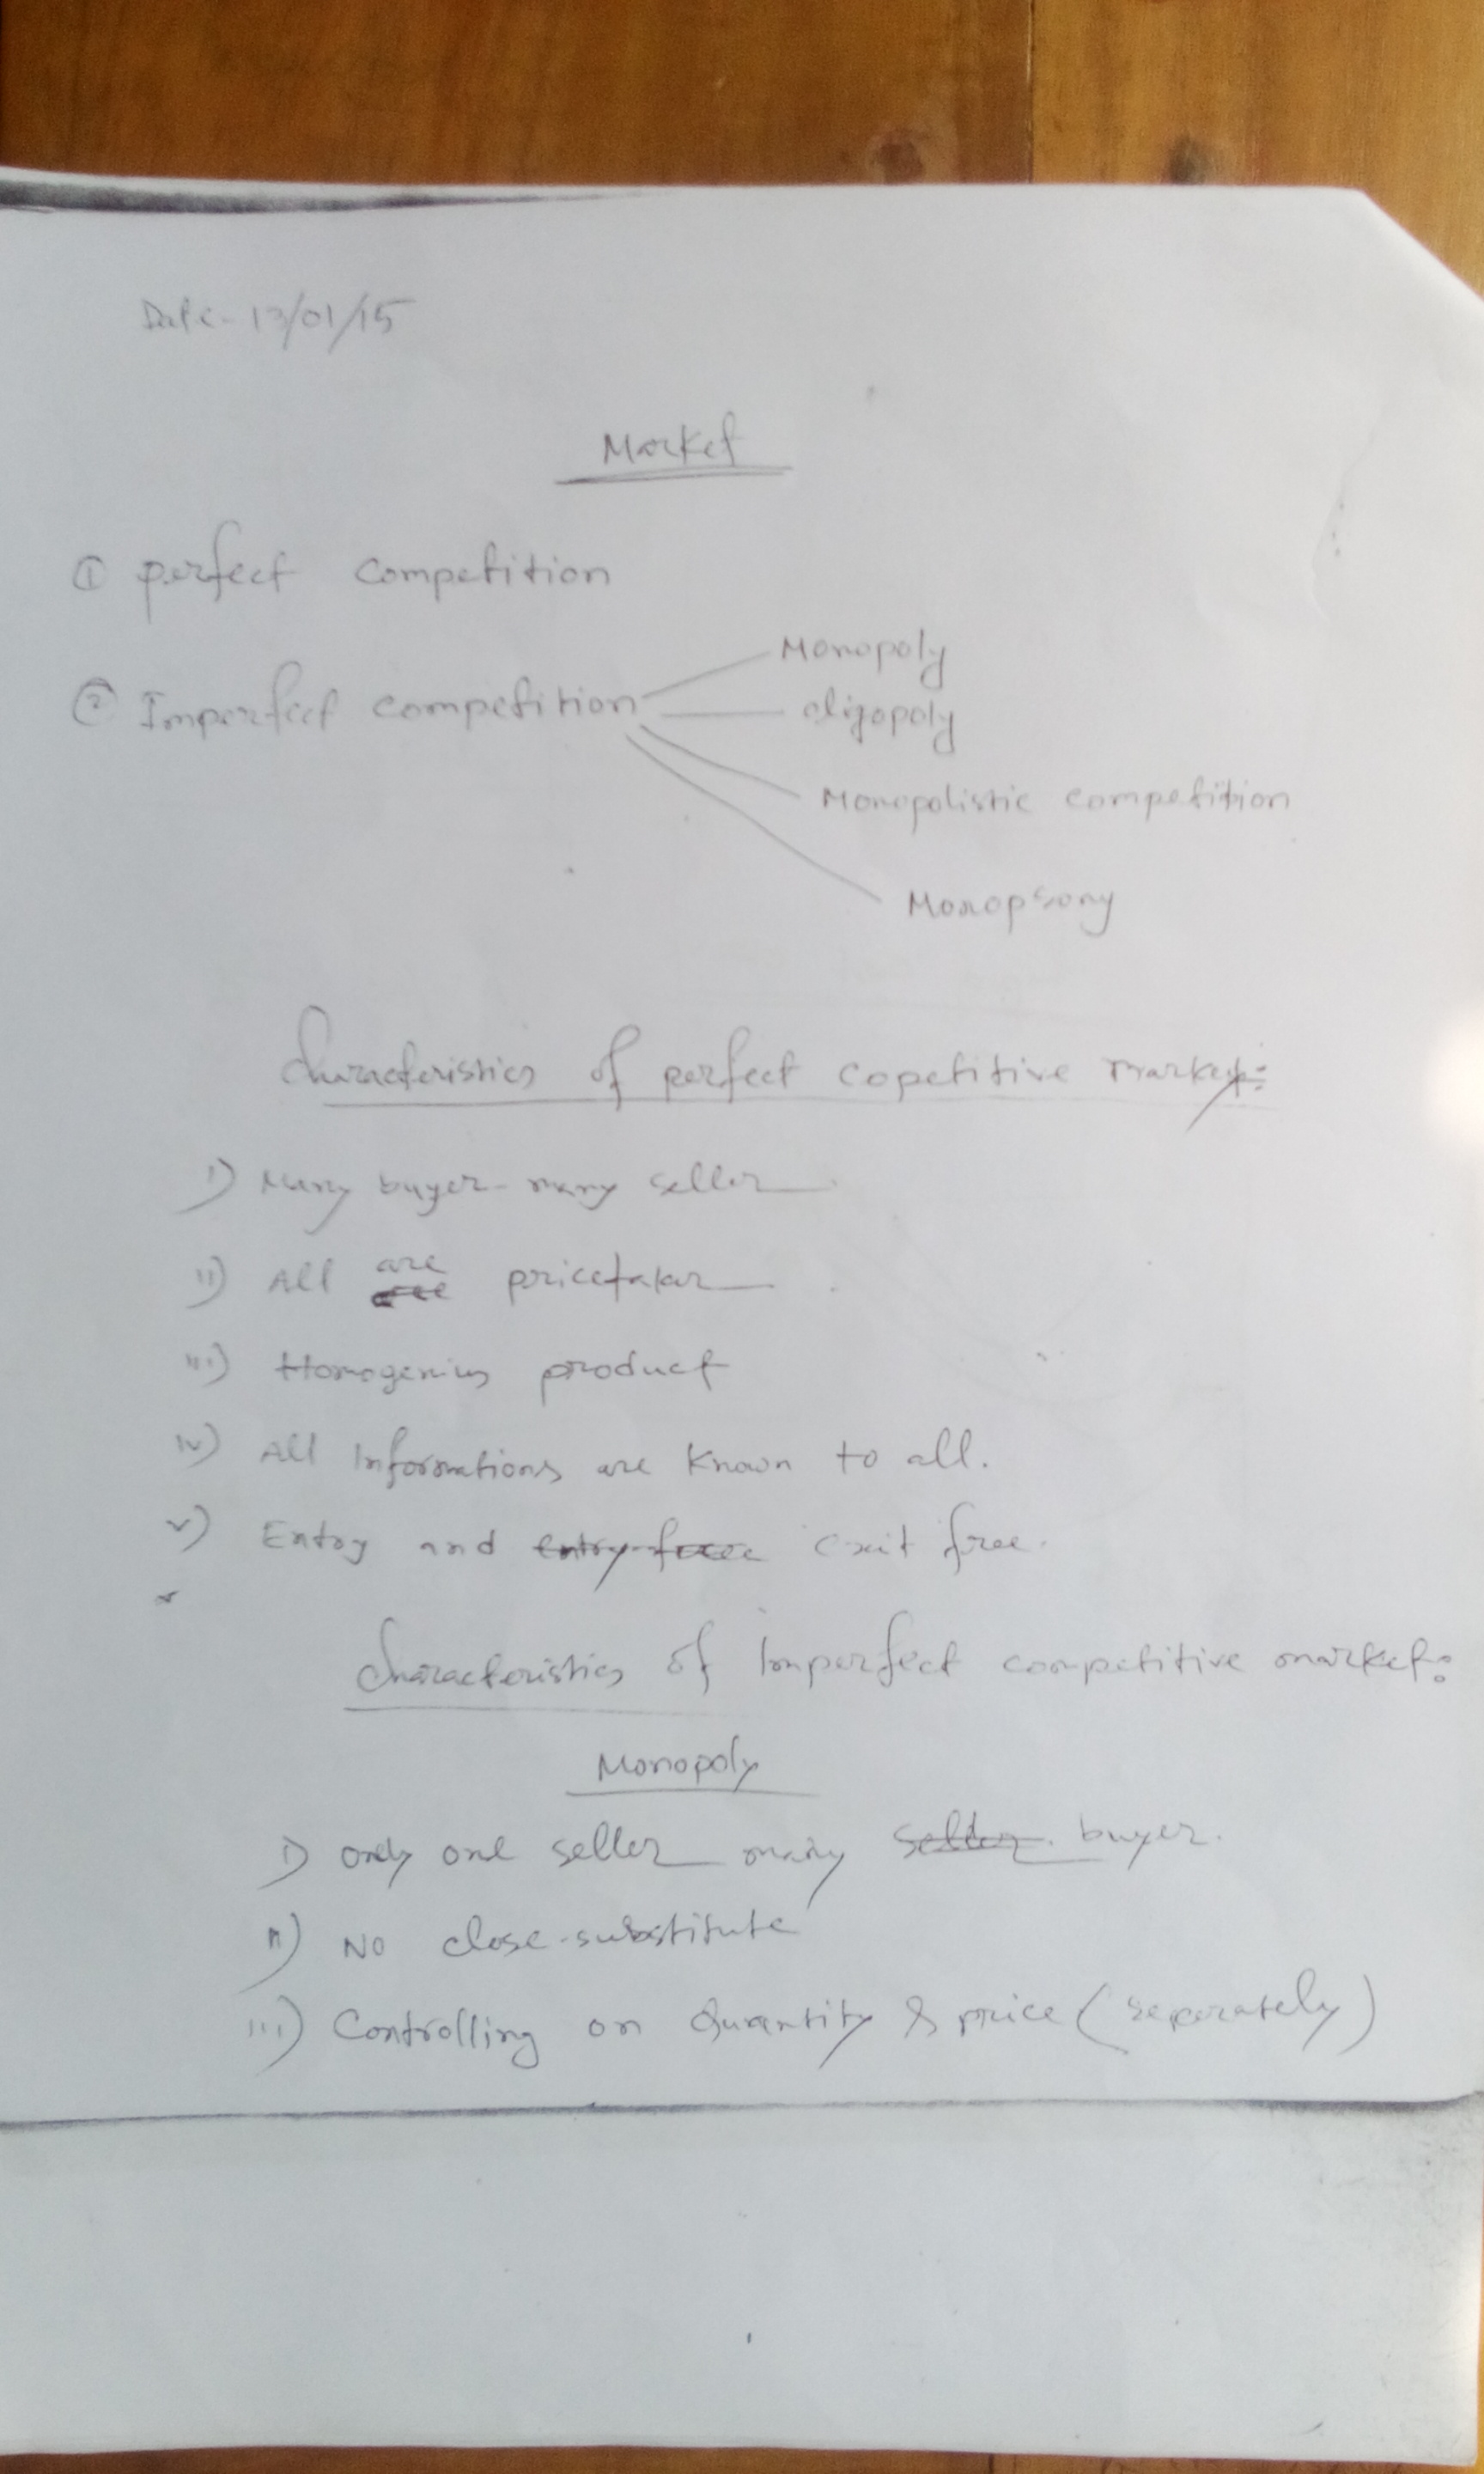 Date- 13/01/15
Market
① perfect competition
② Imperfect competition
Monopoly
oligopoly
Monopolistic competition
Monopsony
Characteristics of perfect copetitive market:
i) Many buyer - many seller
ii) All are pricetaker
iii) Homogenius product
iv) All Informations are known to all.
v) Entry and entry free exit free.
Characteristics of Imperfect competitive market:
Monopoly
i) only one seller many seller. buyer.
ii) No close-substitute
iii) Controlling on Quantity & price (seperately)